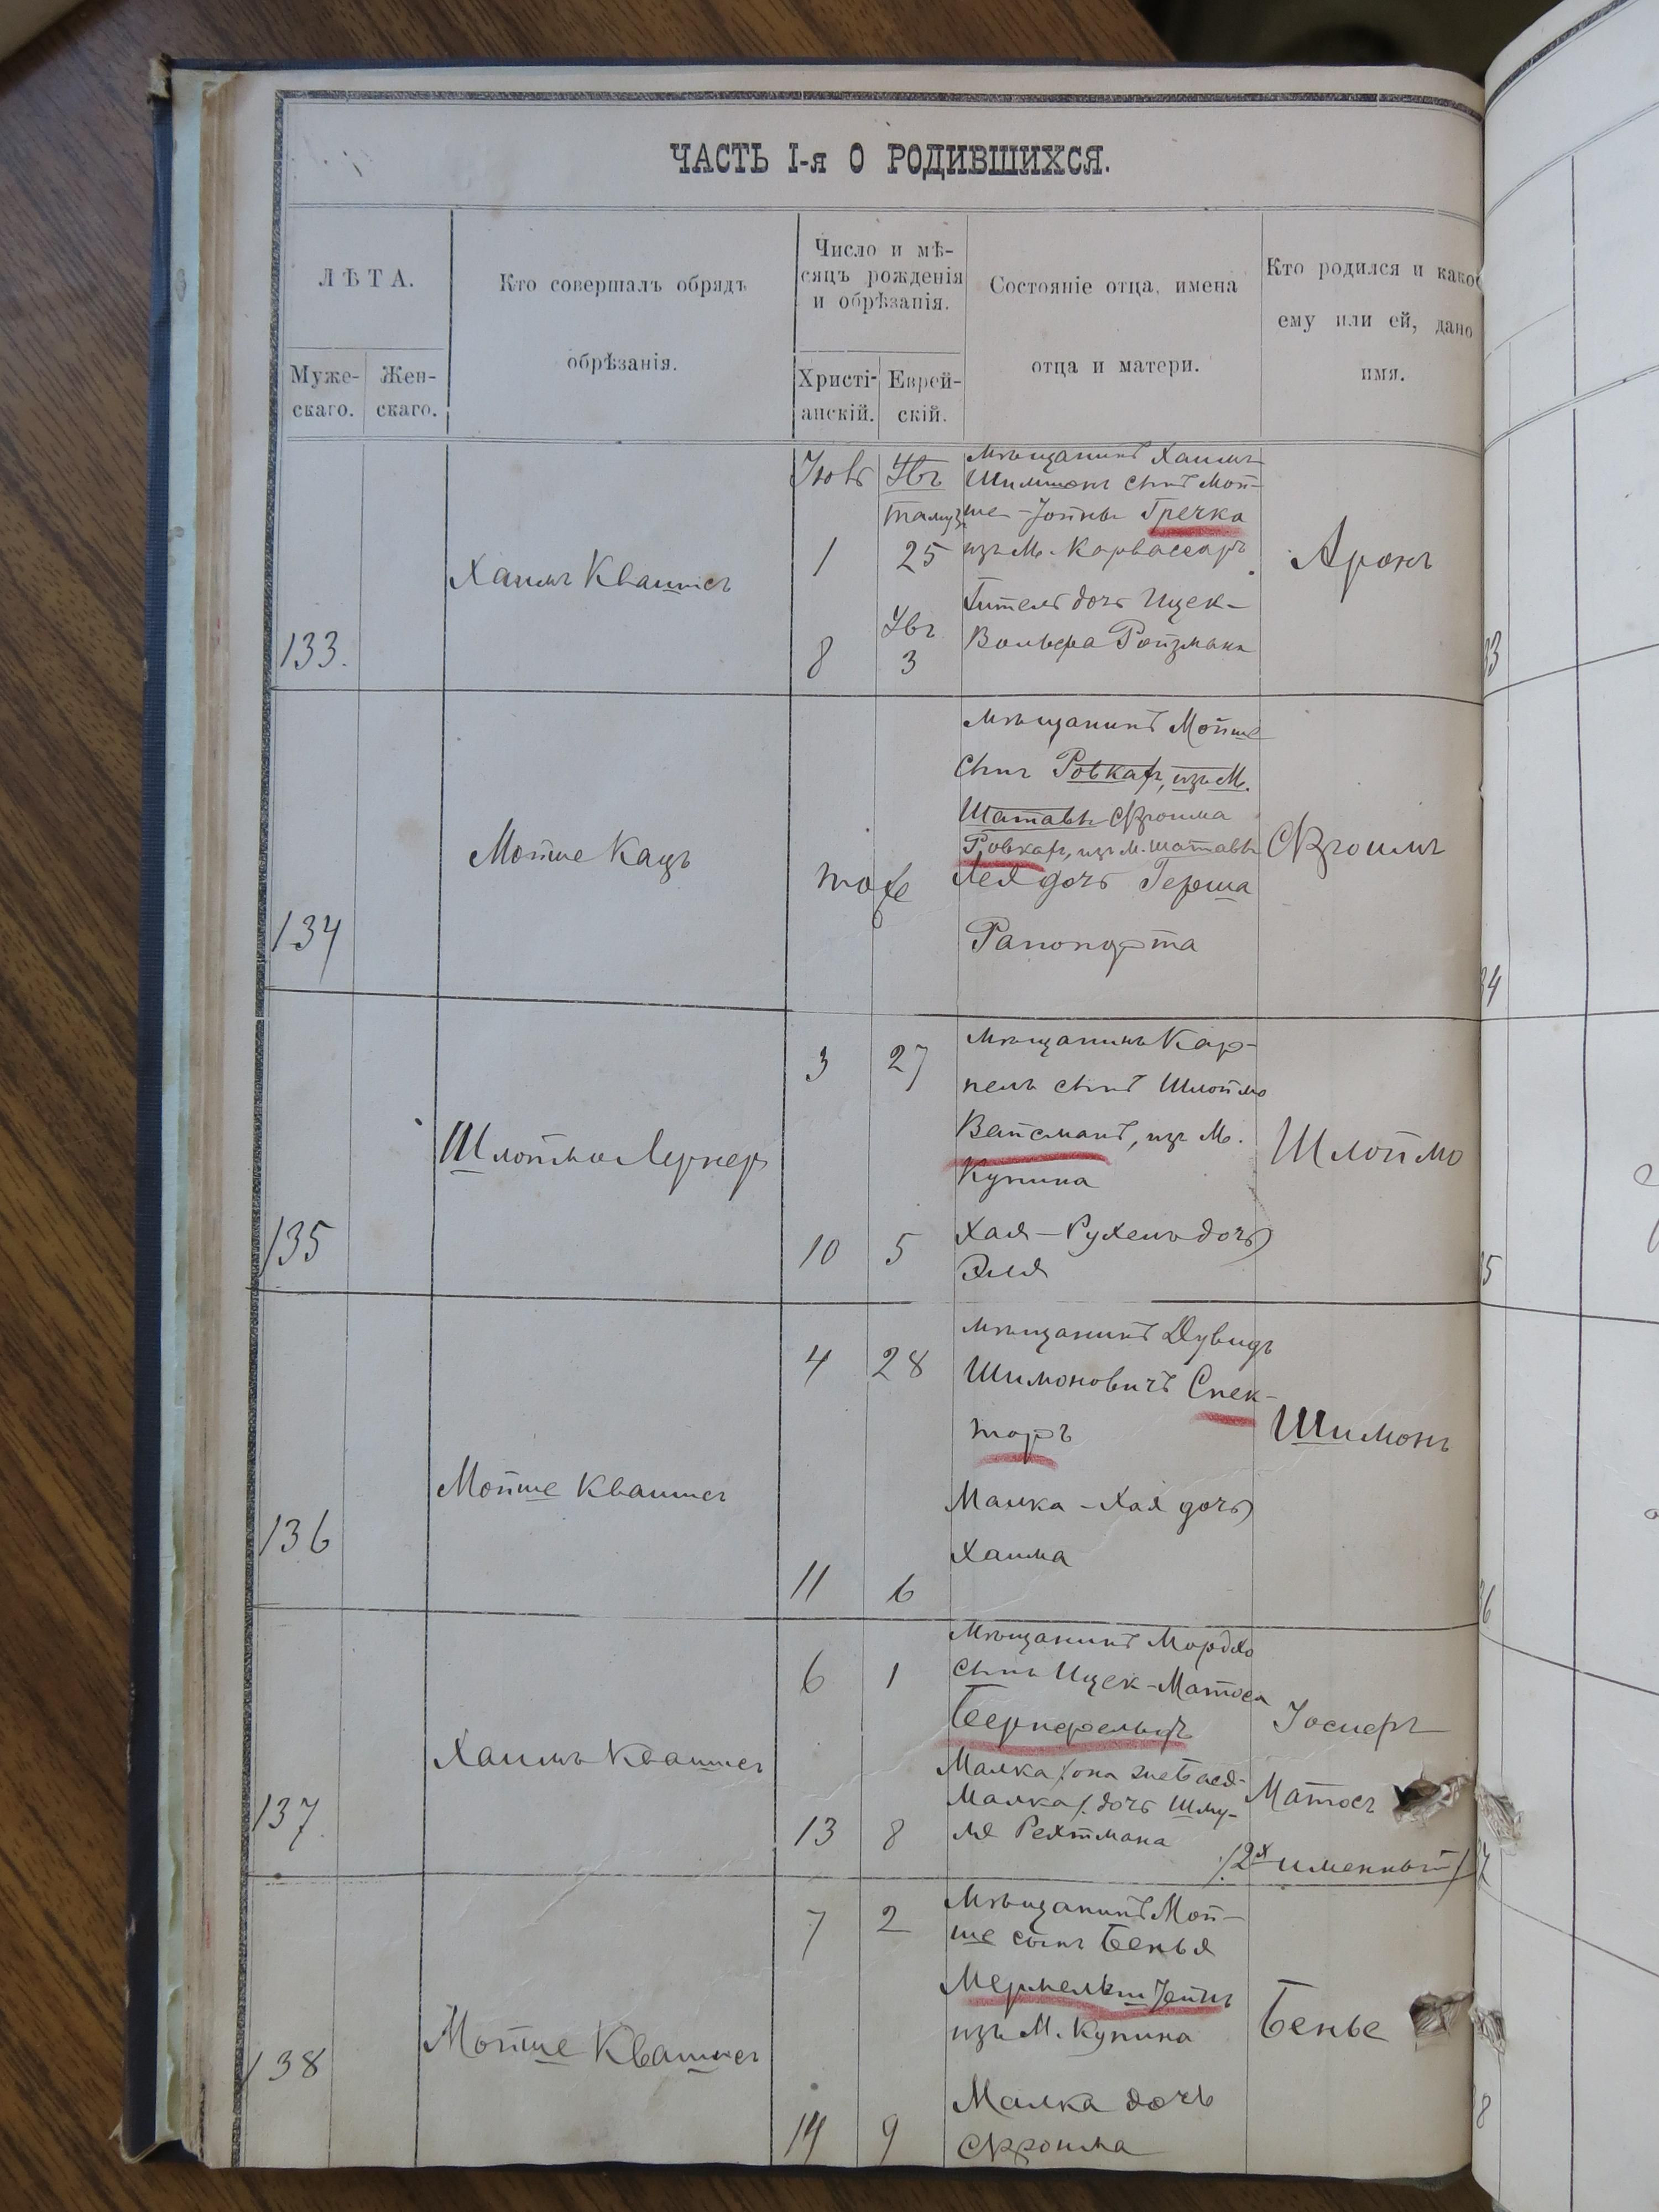 ЧАСТЬ I-я О РОДИВШИХСЯ.
ЛѢТА.
Муже-
скаго.
Жен-
скаго.
Кто совершалъ обрядъ
обрѣзанія.
Число и мѣ-
сяцъ рожденія
и обрѣзанія.
Христі-
анскій.
Еврей-
скій.
Состояніе отца, имена
отца и матери.
Кто родился и како
ему или ей, дано
имя.
133.
Хаимъ Квашнеъ
1
8
Тамуз
25
3
Мѣщанинъ Хаимъ
Шимшонъ сынъ Мой-
ше-Іойны Гречка
изъ м. Карвасаръ
Гитель дочь Ицек-
Вольфа Ройзмана
Аронъ
134
Мойше Кацъ
тоже
Мѣщанинъ Мойше
сынъ Ровкаръ, изъ М.
Шатавы Фроима
Ровкаръ, изъ М. Шатавы
Лея дочь Герша
Рапопорта
Фроимъ
135
Шлойма Лернер
3
10
27
5
Мѣщанинъ Кар-
пель сынъ Шлоймо
Вайсманъ, изъ М.
Купина
Хая-Рухель дочь
Эля
Шлоймо
136
Мойше Квашнеъ
4
11
28
6
Мѣщанинъ Дувидъ
Шимоновичъ Спек-
торъ
Малка-Хая дочь
Хаима
Шимонъ
137
Хаимъ Квашнеъ
6
13
1
8
Мѣщанинъ Мордхо
сынъ Ицек-Матоса
Бернфельдъ
Малка /она
Малка/ дочь Шму-
ля Рехтмана
Іосифъ
Матосъ
/2х именный/
138
Мойше Квашнеъ
7
14
2
9
Мѣщанинъ Мой-
ше сынъ Бенья
изъ М. Купина
Малка дочь
Фроима
Бенье